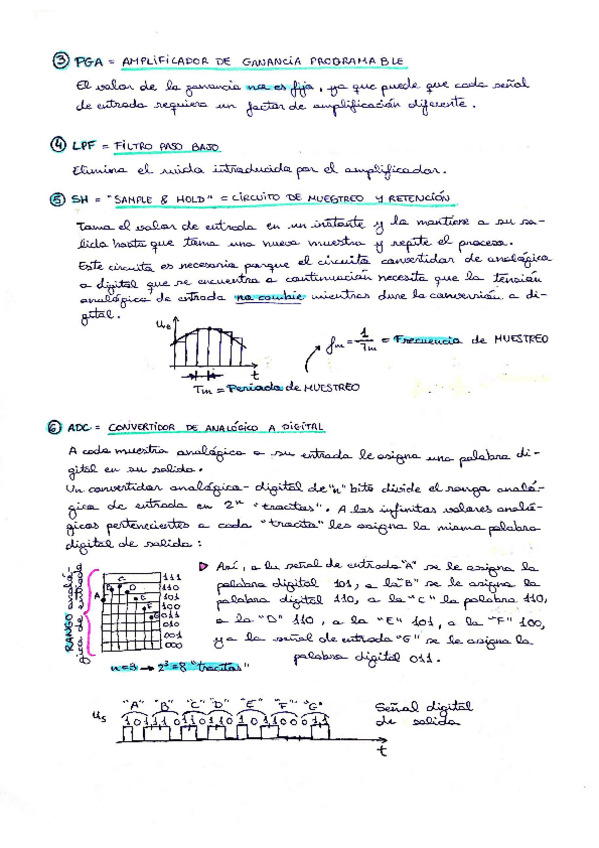 ③ PGA = AMPLIFICADOR DE GANANCIA PROGRAMABLE
El valor de la ganancia no es fijo, ya que puede que cada señal
de entrada requiera un factor de amplificación diferente.
④ LPF = FILTRO PASO BAJO
Elimina el ruido introducido por el amplificador.
⑤ SH = "SAMPLE & HOLD" = CIRCUITO DE MUESTREO Y RETENCIÓN
Toma el valor de entrada en un instante y lo mantiene a su sa-
lida hasta que toma una nueva muestra y repite el proceso.
Este circuito es necesario porque el circuito convertidor de analógico
a digital que se encuentra a continuación necesita que la tensión
analógica de entrada no cambie mientras dure la conversión a di-
gital.
Ue
t
Tm = Periodo de MUESTREO
fm = 1/Tm = Frecuencia de MUESTREO
⑥ ADC = CONVERTIDOR DE ANALÓGICO A DIGITAL
A cada muestra analógica a su entrada le asigna una palabra di-
gital en su salida.
Un convertidor analógico-digital de "n" bits divide el rango analó-
gico de entrada en 2ⁿ "trocitos". A los infinitos valores analó-
gicos pertenecientes a cada "trocito" les asigna la misma palabra
digital de salida:
RANGO analó-
gico de entrada
A C D E F G
111
110
101
100
011
010
001
000
n=3 → 2³=8 "trocitos"
▷ Así, a la señal de entrada "A" se le asigna la
palabra digital 101, a la "B" se le asigna la
palabra digital 110, a la "C" la palabra 110,
a la "D" 110, a la "E" 101, a la "F" 100,
y a la señal de entrada "G" se le asigna la
palabra digital 011.
"A" "B" "C" "D" "E" "F" "G"
Us
101110110110101100011
t
Señal digital
de salida